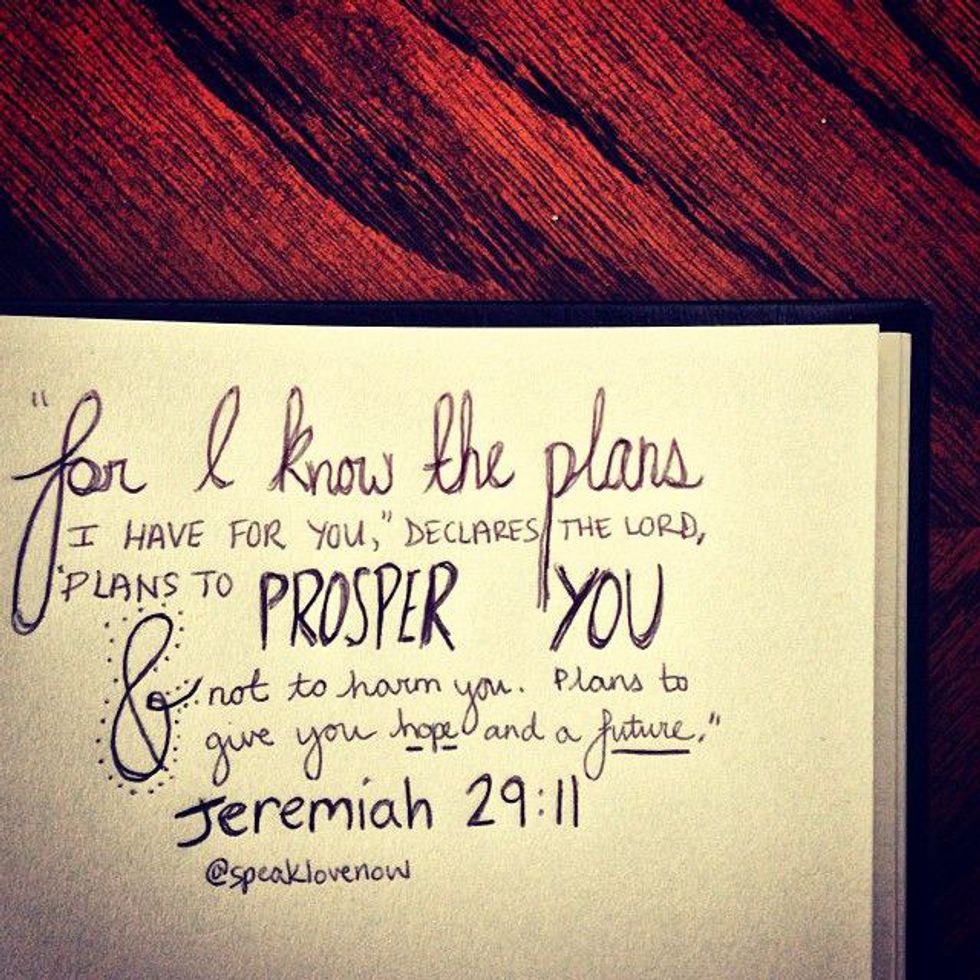 "for I know the plans
I HAVE FOR YOU," DECLARES THE LORD,
"PLANS TO PROSPER YOU
& not to harm you. Plans to
give you hope and a future."
Jeremiah 29:11
@speaklovenow